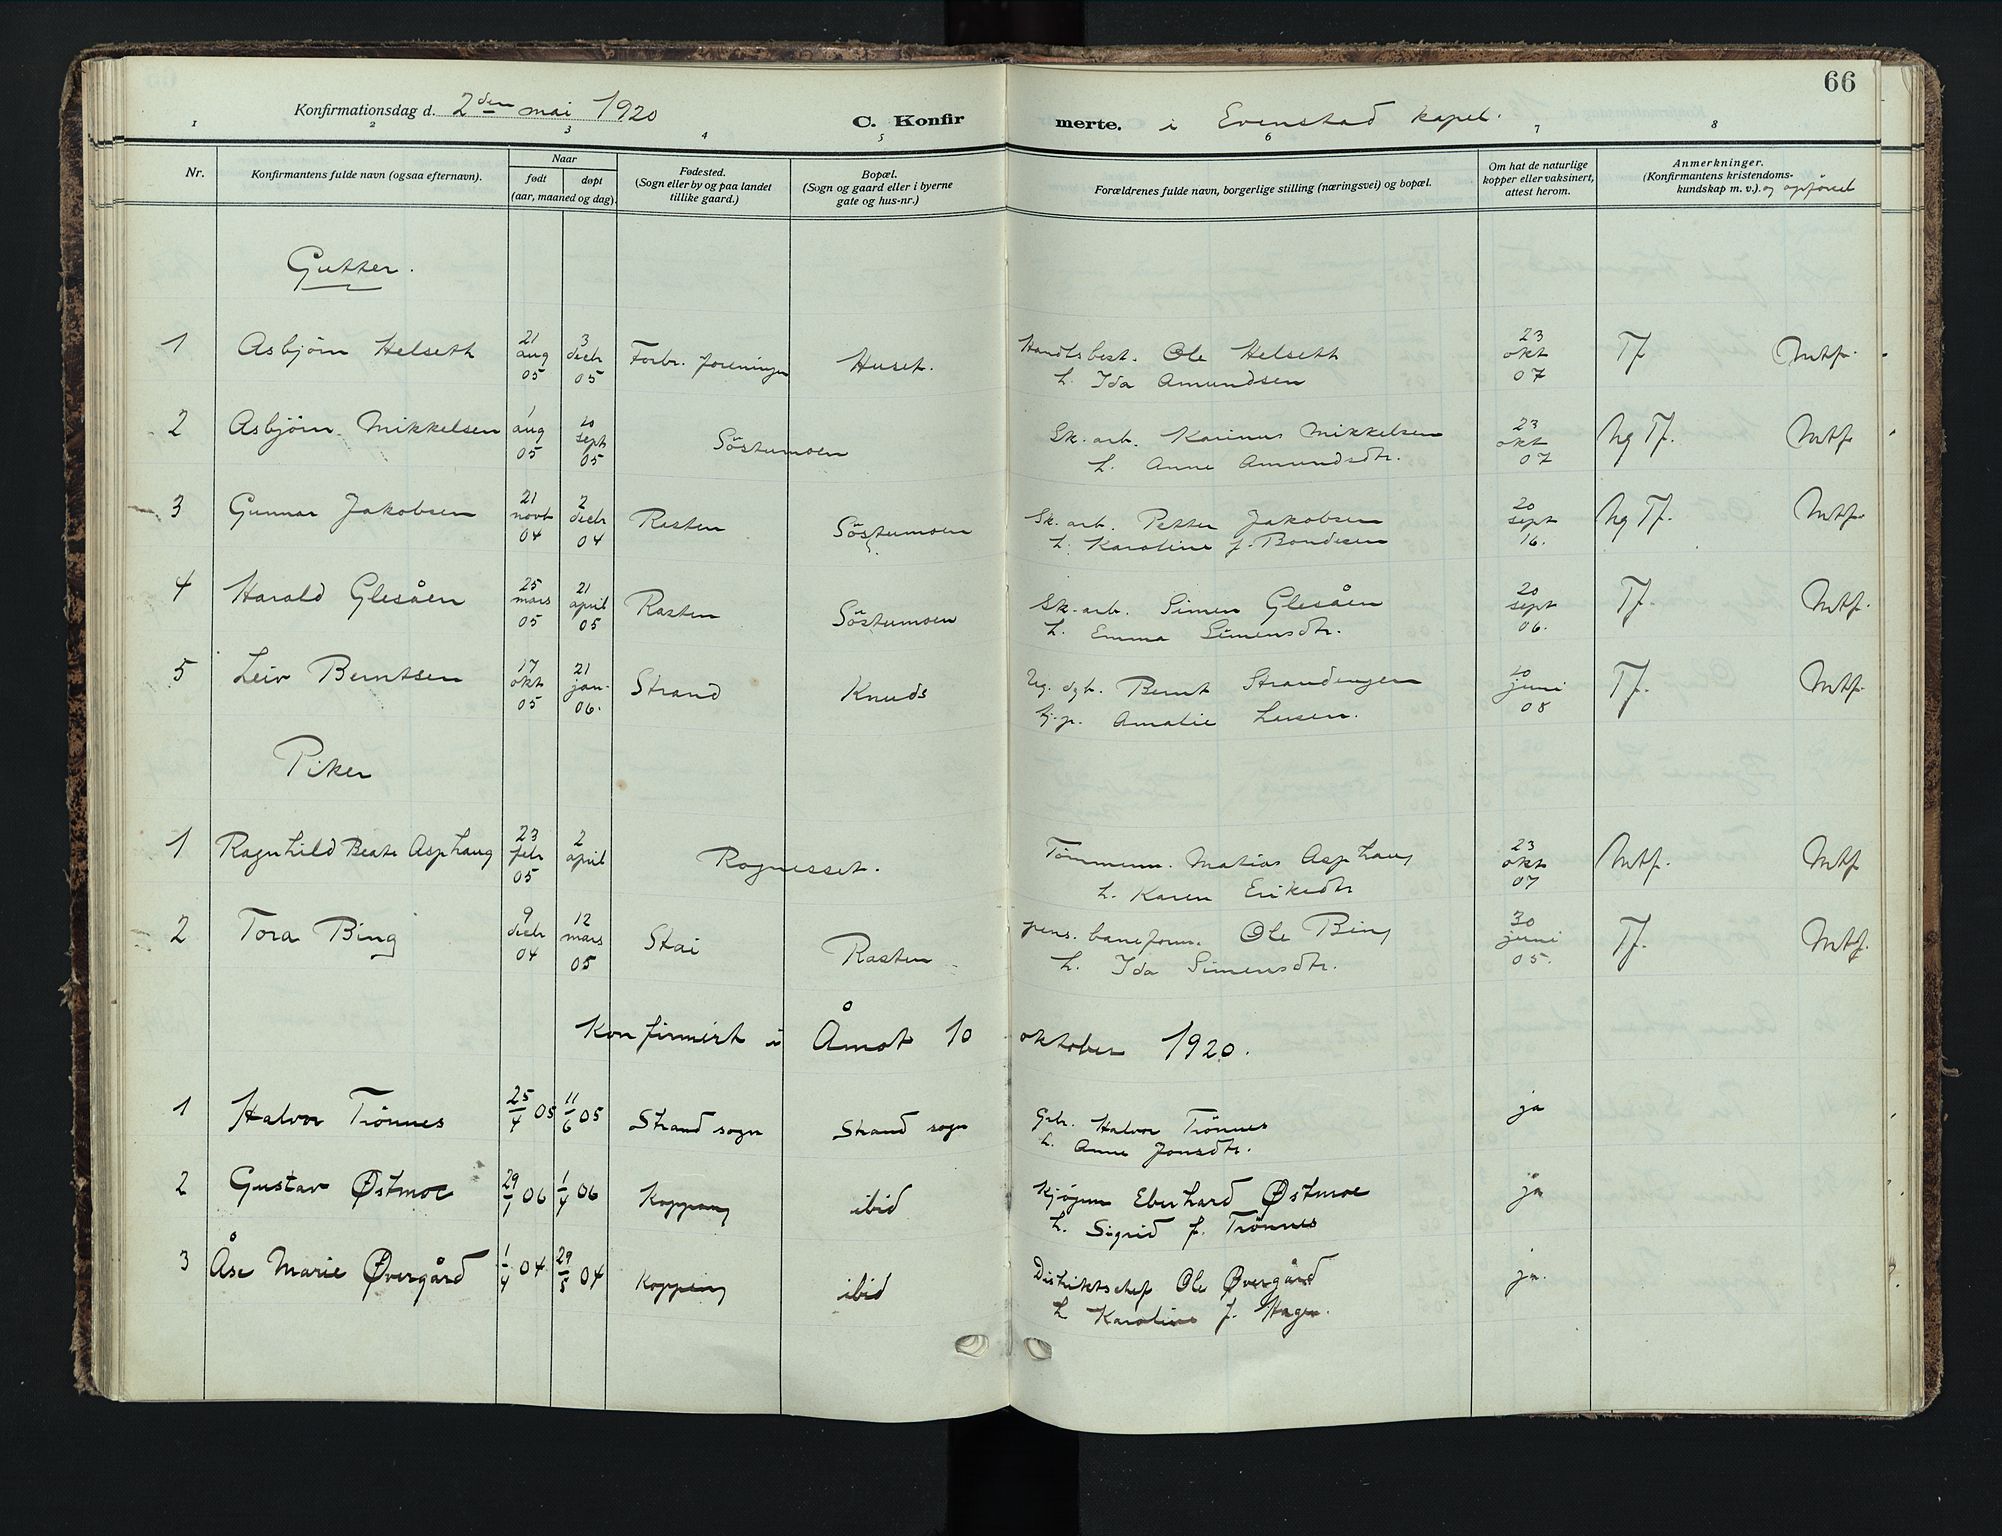 66
Konfirmationsdag d. 2den mai 1920 C. Konfirmerte. i Evenstad kapel.
1 2 3 4 5 6 7 8
Nr. Konfirmantens fulde navn (ogsaa efternavn). Naar født døpt (aar, maaned og dag). Fødested. (Sogn eller by og paa landet tillike gaard.) Bopæl. (Sogn og gaard eller i byerne gate og hus-nr.) Forældrenes fulde navn, borgerlige stilling (næringsvei) og bopæl. Om hat de naturlige kopper eller vaksinert, attest herom. Anmerkninger. (Konfirmantens kristendomskundskap m. v.). og opførsel
Gutter.
1 Asbjörn Helseth 21 aug 05 3 decbr 05 Forbr. foreningen Huset. Handlsbest. Ole Helseth 23 okt 07 Tf. Mtf.
h. Ida Amundsen
2 Asbjörn Mikkelsen 1 aug 05 10 sept 05 Söstumoen Sk. arb. Karinus Mikkelsen 23 okt 07 Ng Tf. Mtf.
h. Anne Amundsdtr.
3 Gunnar Jakobsen 21 novb 04 2 decbr 04 Rasten Söstumoen Sk. arb. Petter Jakobsen 20 sept 16. Ng Tf. Mtf.
h. Karoline f. Bondesen
4 Harald Glesåen 25 mars 05 21 april 05 Rasten Söstumoen Sk. arb. Simen Glesåen 20 sept 06. Tf. Mtf.
h. Emma Simensdtr.
5 Leiv Berntsen 17 okt 05 21 jan. 06. Strand Knuds Ug. dgb. Bernt Strandengen 10 juni 08 Tf. Mtf.
h. p. Amalie Larsen.
Piker
1 Ragnhild Beate Asphaug 23 febr 05 2 april Rognesset. Tömmerm. Matias Asphaug 23 okt 07 Mtf. Mtf
h. Karen Eriksdtr
2 Tora Bing 9 decbr 04 12 mars 05 Stai Rasten pens. baneform. Ole Bing 30 juni 05. Tf. Mtf.
h. Ida Simensdtr.
Konfirmert i Åmot 10 oktober 1920.
1 Halvor Trönnes 25/4 05 11/6 05 Strand sogn Strand sogn Gbr. Halvor Trönnes ja
h. Anne Jonsdtr.
2 Gustav Østmoe 29/1 06 1/4 06 Koppang ibid Kjøpm Eberhard Østmoe ja
h. Sigrid f. Trönnes
3 Åse Marie Øvergård 1/4 04 29/5 04 Koppang ibid Distriktschef Ole Øvergård ja.
h Karoline f. Hagen.